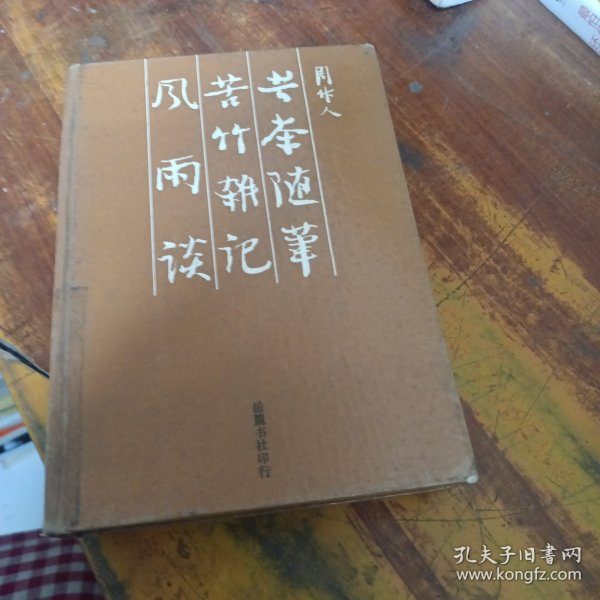 周作人
苦茶随笔
苦竹杂记
风雨谈
岳麓书社印行
孔夫子旧书网
www.kongfz.com